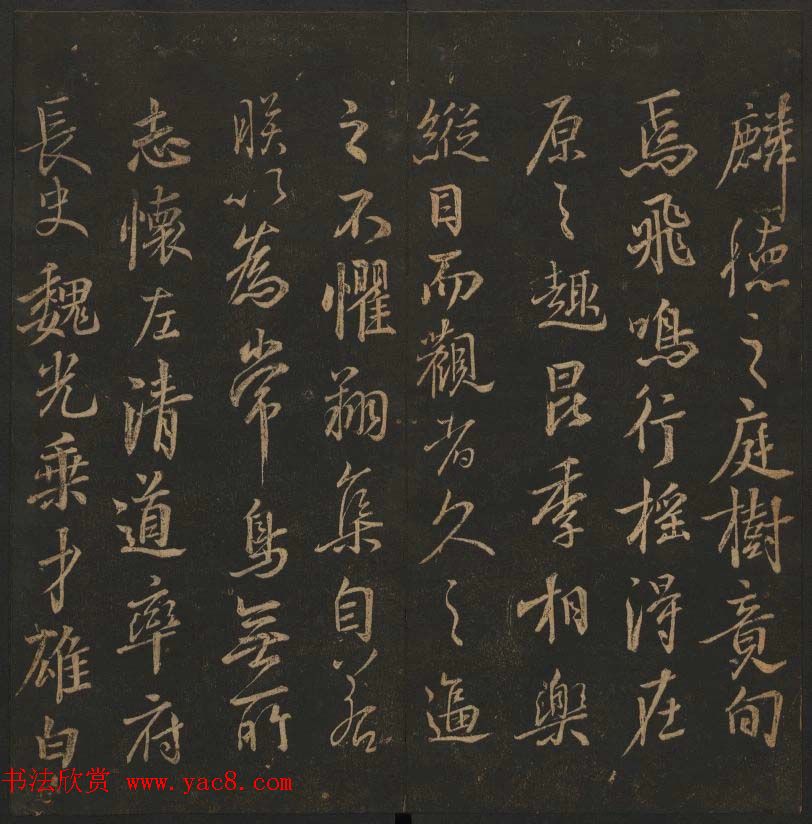 麟德之庭樹竟旬
焉飛鳴行搖得在
原之趣昆季相樂
縱目而觀者久之逼
之不懼翔集自若
朕以為常鳥無所
志懷左清道率府
長史魏光乗才雄白
书法欣赏 www.yac8.com